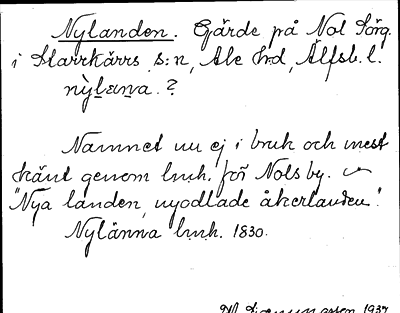 Nylanden. Gärde på Nol Sörg.
i Starrkärrs s:n, Ale hd, Älfsb. l.
nỳlan̥a. ?
Namnet nu ej i bruk och mest
känt genom lmh. för Nols by. ~
"Nya landen, nyodlade åkerlanden".
Nylänna lmh. 1830.
1937